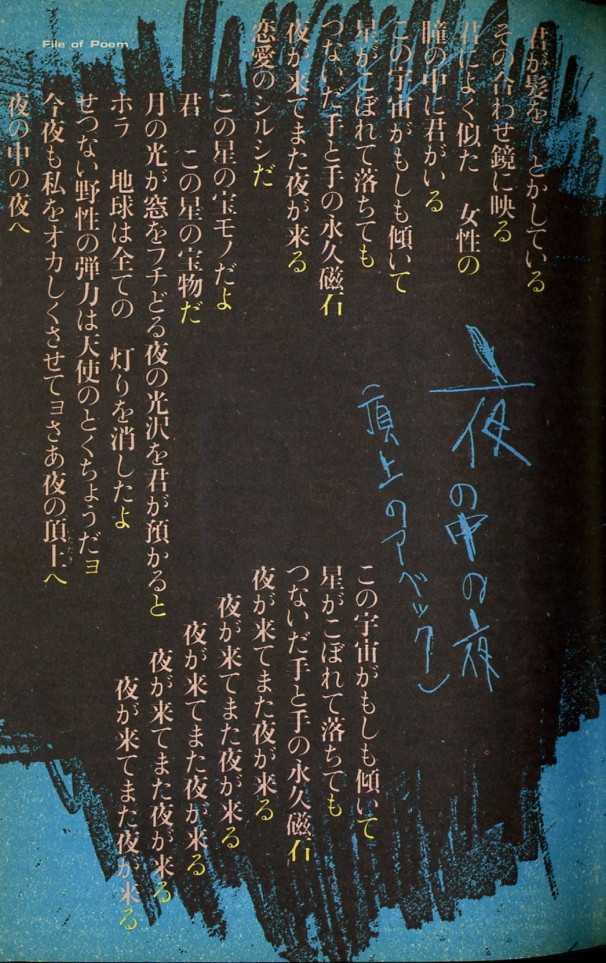 File of Poem
夜の中の夜
(頂上のアベック)
君が髪を とかしている
その合わせ鏡に映る
君によく似た 女性の
瞳の中に君がいる
この宇宙がもしも傾いて
星がこぼれて落ちても
つないだ手と手の永久磁石
夜が来てまた夜が来る
恋愛のシルシだ
この星の宝モノだよ
君 この星の宝物だ
月の光が窓をフチどる夜の光沢を君が預かると
ホラ 地球は全ての 灯りを消したよ
せつない野性の弾力は天使のとくちょうだョ
今夜も私をオカしくさせてョさあ夜の頂上へ
夜の中の夜へ
この宇宙がもしも傾いて
星がこぼれて落ちても
つないだ手と手の永久磁石
夜が来てまた夜が来る
夜が来てまた夜が来る
夜が来てまた夜が来る
夜が来てまた夜が来る
夜が来てまた夜が来る